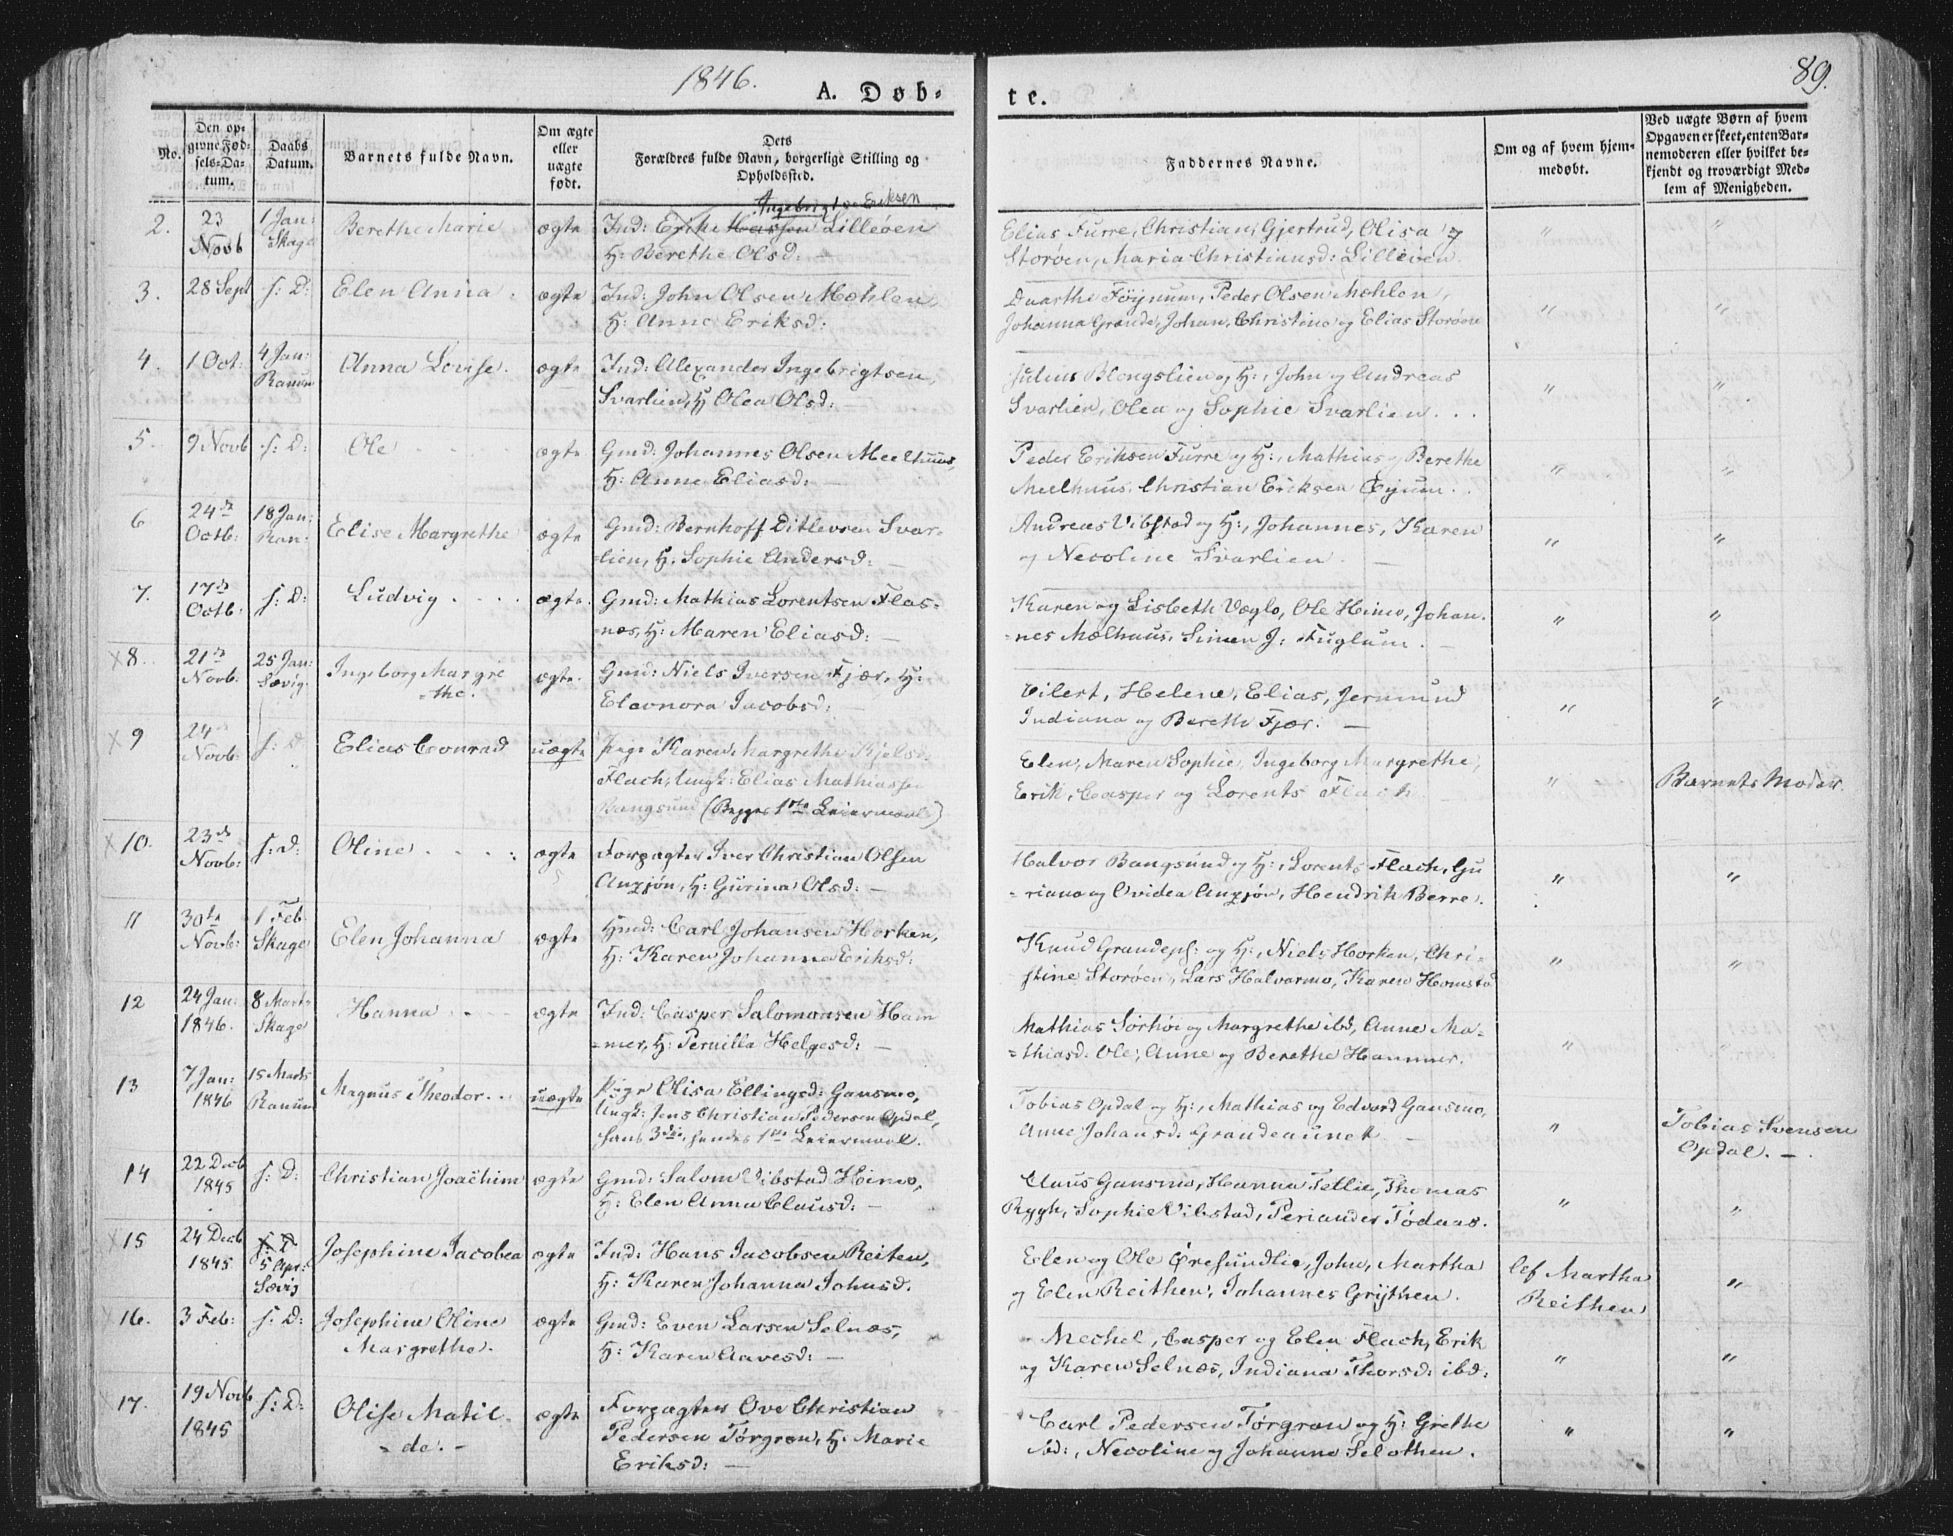 1846.
89.
A. Døb-
te.
No.
Den op-
givne Fød-
sels-Da-
tum.
Daabs
Datum.
Barnets fulde Navn.
Om ægte
eller
uægte
født.
Dets
Forældres fulde Navn, borgerlige Stilling og
Opholdssted.
Faddernes Navne.
Om og af hvem hjem-
medøbt.
Ved uægte Børn af hvem
Opgaven er skeet, enten Bar-
nemoderen eller hvilket be-
kjendt og troværdigt Med-
lem af Menigheden.
2.
23
Novb
1 Jan:
Skage
Berethe Marie
ægte
Ingebrigt Eriksen
Ind: Lilleøen
H: Berethe Olsd:
Elias Furre, Christian, Gjertrud, Olisa
Storøen, Maria Christiansd: Lilleøen.
"
"
3.
28 Sept
s: D:
Elen Anna
ægte
Ind: John Olsen Mæhlen,
H: Anne Eriksd:
Duarthe Føynum, Peder Olsen Mæhlen,
Johanna Grande, Johan, Christine og Elias Storøen
"
"
4.
1 Oct:
4 Jan:
Ranum
Anna Lovise.
ægte
Ind: Alexander Ingebrigtsen
Svarlien, H Olea Olsd:
Julius Blengslien og H:, John og Andreas
Svarlien, Olea og Sophie Svarlien...
"
"
5.
9 Novb
s: D:
Ole
ægte
Gmd: Johannes Olsen Meelhuus,
H: Anne Eliasd:
Peder Eriksen Furre og H:, Mathias og Berethe
Meelhuus, Christian Eriksen Øyum
"
"
6
24de
Octb:
18 Jan:
Ran:
Elise Margrethe
ægte
Gmd: Bernhoff Ditlevsen Svar-
lien, H. Sophie Andersd:
Andreas Vibstad og H:, Johannes, Karen
og Necoline Svarlien
"
"
7.
17de
Octb:
s: D:
Ludvig
ægte.
Gmd: Mathias Lorentsen Flas-
næs, H: Maren Eliasd:
Karen og Lisbeth Veglo, Ole Heimo, Johan-
nes Mælhuus, Simen J: Fuglum.
"
"
x 8.
21de
Novb.
25 Jan:
Sævig.
Ingeborg Margre
the.
ægte.
Gmd: Niels Iversen Fjær, H:
Eleonora Jacobsd:
Eilert, Helene, Elias, Jermund
Indiana og Berethe Fjær.
"
"
x 9
24de
Novb:
s: D
Elias Conrad
uægte
Pige Karen Margrethe Kjelsd.
Flach, Ungk: Elias Mathiassen
Bangsund (Begges 1ste Leiermaal)
Elen, Maren Sophie, Ingeborg Margrethe,
Erik, Casper og Lorents Flach
"
Barnets Moder.
x 10.
23de
Novb:
s: D:
Oline
ægte
Forpagter Iver Christian Olsen
Anzjøn, H: Gurina Olsd:
Halvor Bangsund og H:, Lorents Flach, Gu
riana og Ovidea Anzjøn, Hendrik Berre.
"
"
11
30te
Novb:
1 Feb.
Skage
Elen Johanna
ægte
Hmd: Carl Johansen Horken,
H: Karen Johanne Eriksd:
Knud Grandepl: og H:, Niels Horken, Chri-
stine Storøen, Lars Halvarmo, Karen Homstad
"
"
12
24 Jan:
1846.
8 Marts
Skage
Hanna
ægte
Ind: Casper Salomonsen Ham
mer, H: Pernilla Helgesd:
Mathias Sørhøi og Margrethe ibd, Anne Ma-
thiasd: Ole, Anne og Berethe Hammer.
"
"
13
7 Jan:
1846
15 Marts
Ranum
Magnus Theodor
uægte
Pige Olisa Ellingsd: Gansmo,
Ungk: Jens Christian Pedersen Opdal,
hans 3die, hendes 1ste Leiermaal.
Tobias Opdal og H:, Mathias og Edvard Gansmo,
Anne Johansd: Grandeaunet
"
Tobias Svensen
Opdal.
14
22 Decb
1845
s: D:
Christian Joachim
ægte
Gmd: Salom Vibstad Heimo,
H: Elen Anna Clausd:
Claus Gansmo, Hanna Tetlie, Thomas
Rygh, Sophie Vibstad, Periander Tødaas.
"
"
15
24 Decb
1845
s: D
5 Apr:
Sævig
Josephine Jacobea
ægte
Ind: Hans Jacobsen Reiten,
H: Karen Johanna Johnsd.
Elen og Ole Øresundlie, John, Martha
og Elen Reithen, Johannes Grythen.
Af Martha
Reithen
"
16.
3 Feb:
s: D:
Josephine Oline
Margrethe.
ægte
Gmd: Even Larsen Selnæs,
H: Karen Aavesd:
Mechel, Casper og Elen Flach, Erik
og Karen Selnæs, Indiana Thorsd: ibd:
"
"
17.
19 Novb
1845
s: D:
Olise Matil-
de.
ægte
Forpagter Ove Christian
Pedersen Tørgren, H: Marie
Eriksd:
Carl Pedersen Tørgren og H: Grethe
ibd:, Necoline og Johanna Selothen.
"
"